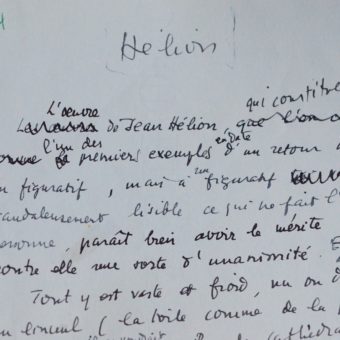 [Hélion]
qui constitue
L'œuvre
de Jean Hélion, que l'on a
l'un des en date
premiers exemples d'un retour a
un figuratif, mais à un figuratif
scandaleusement lisible ce qui ne fait l'
personne, paraît bien avoir le mérite
contre elle une vaste d'unanimité.
Tout y est vaste et froid, nu ou d
un linceul (la toile comme de la
cathédra